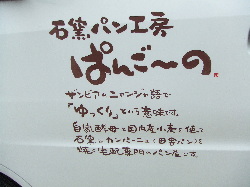 石窯パン工房
ぱんご〜の
ザンビアのニャンジャ語で
「ゆっくり」という意味です。
自家酵母と国内産小麦を使って
石窯でカンパーニュ(田舎パン)を
焼く宅配専門のパン屋です。